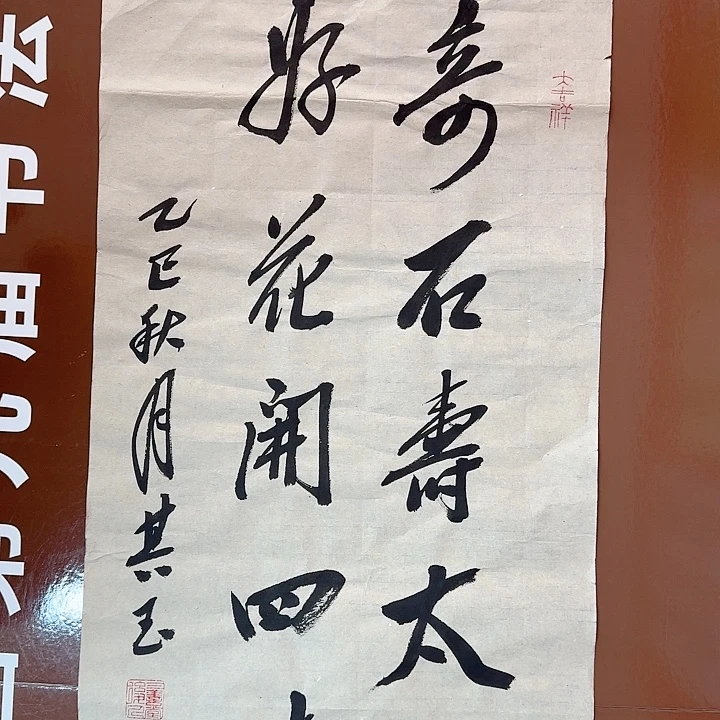 大吉祥
奇石壽太
好花開四
乙巳秋月其玉